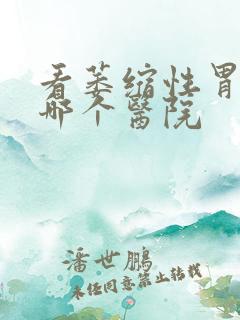 看萎缩性胃
哪个醫院
潘世鹏
未经同意禁止转载